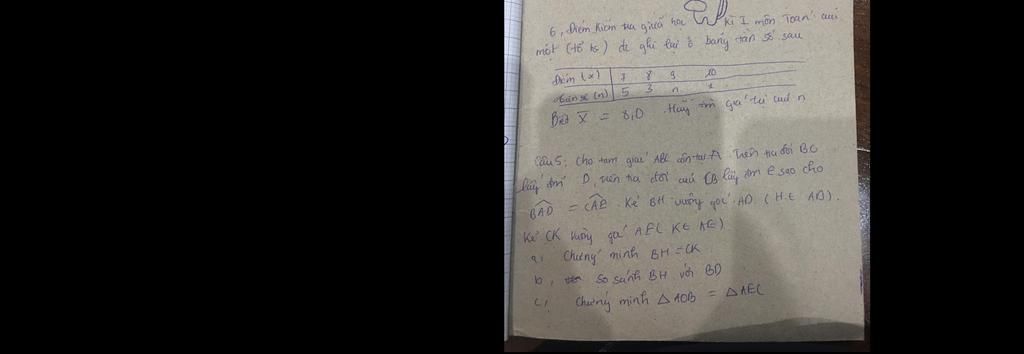 6, Điểm kiểm tra giữa học kì I môn Toán của
một (tổ hs) đc ghi lại ở bảng tần số sau
Điểm (x) 7 8 9 10
Tần số (n) 5 3 n 1
Biết X̄ = 8,0 Hãy tìm giá trị của n
Câu 5: Cho tam giác ABC cân tại A. Trên tia đối BC
lấy điểm D, trên tia đối của CB lấy điểm E sao cho
BAD = CAE. Kẻ BH vuông góc AD (H ∈ AD).
Kẻ CK vuông góc AE (K ∈ AE)
a, Chứng minh BH = CK
b, So sánh BH với BD
c, Chứng minh △ADB = △AEC